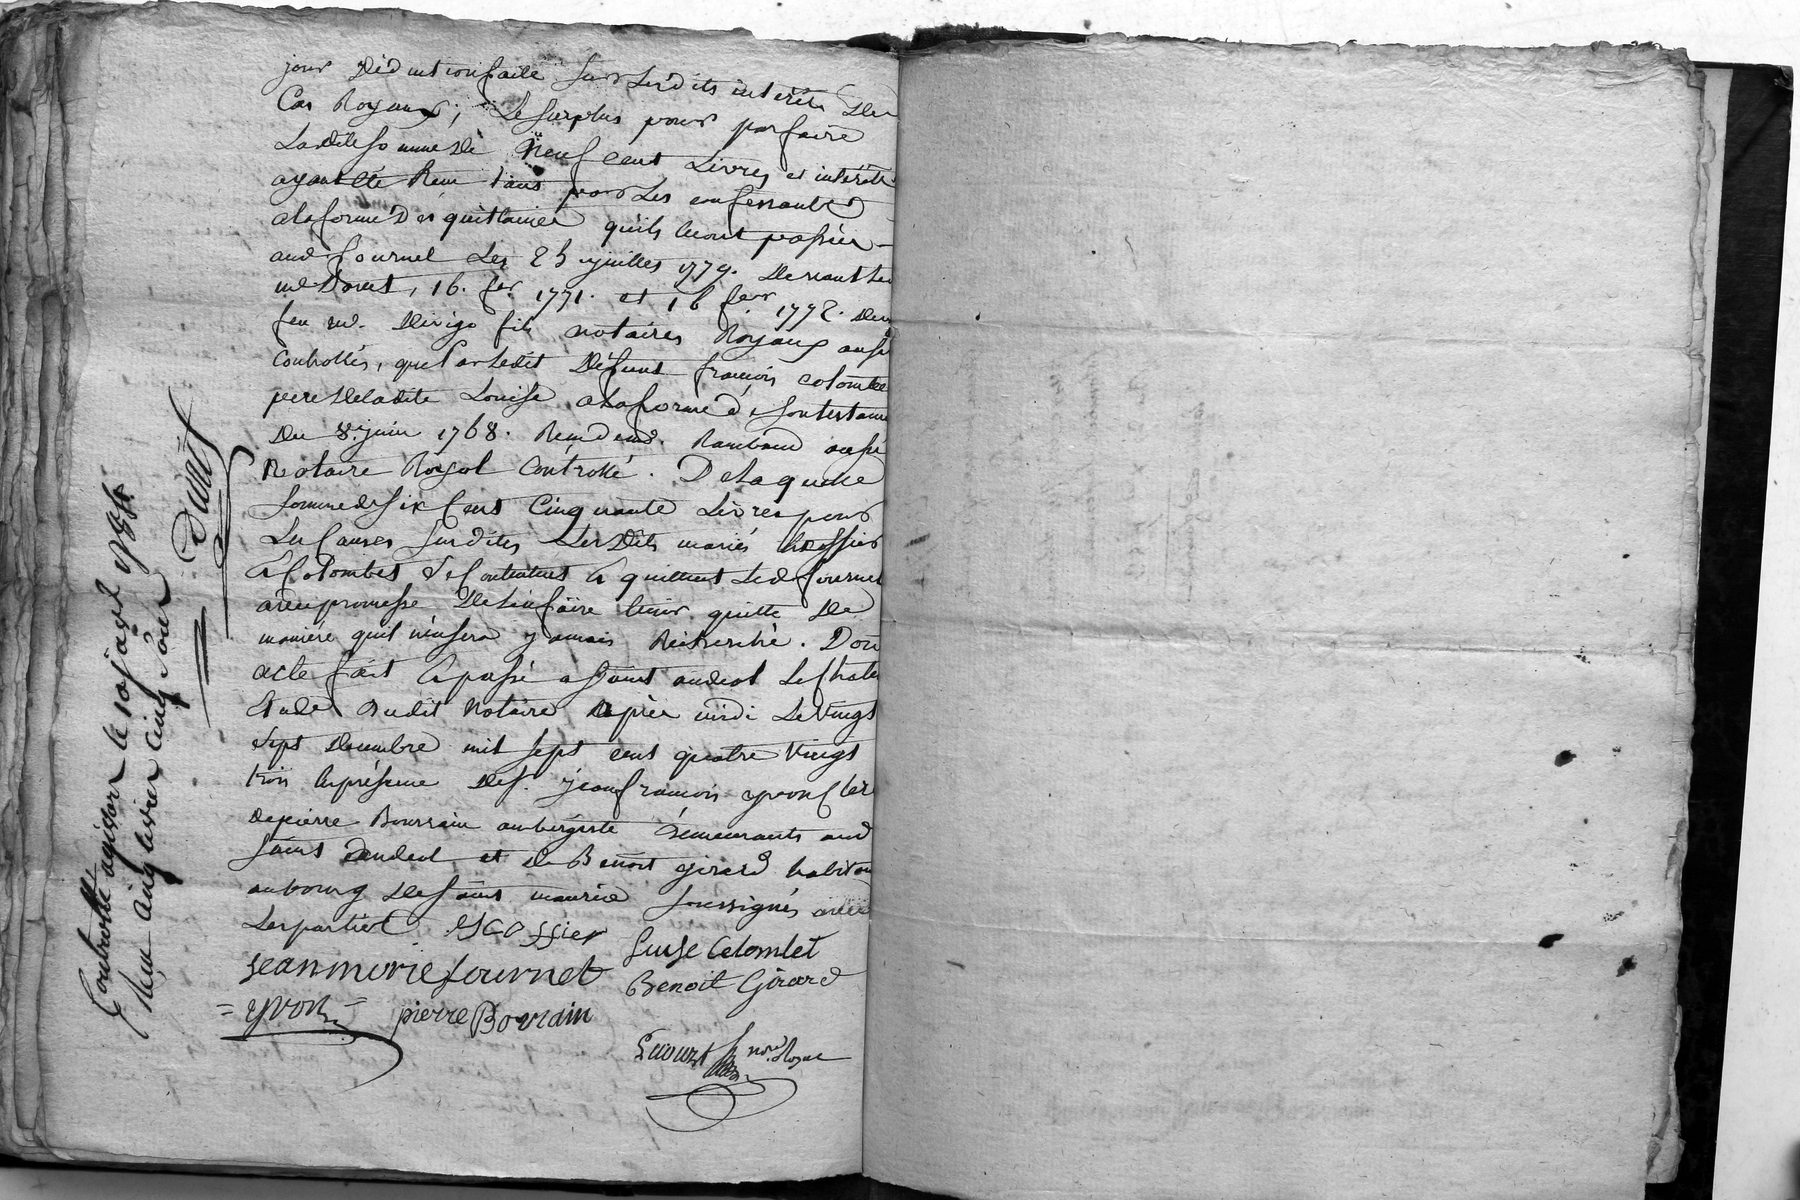 jour déduction faite sur lesdits intérêts des
Cas Royaux; le surplus pour parfaire
Laditte somme de neuf cent Livres et intérêts
ayant été Reçu par les confessants
à la forme des quittances qu'ils luiont passées
aud fournel les 25 juillet 1779. devant
me Dorat, 16. fer 1771. et 16 fer 1772. devt
feu me. fils notaires Royaux aussi
Controllés, que par ledit défunt francois colombet
pere de ladite Louise, a la forme de son testament
du 8. juin 1768. Reçu dud. Rambaud aussi
Notaire Royal Controllé. De laquelle
somme de six cens cinquante Livres pour
Les Causes susdites Lesdits mariés Escoffier
& Colombet se contentent & quittent led fournel
avec promesse de l'en faire tenir quitte de
manière quil n'en sera jamais Recherché. Dont
acte fait & passé a saint andeol le chateau
Etude dudit Notaire après midi Le vingt
sept decembre mil sept cent quatre vingt
trois En présence de s. jean francois yvon clerc
de pierre Bourrain aubergiste demeurants aud
saint andeol et de Benoit girard habitant
au bourg de saint maurice soussignés avec
Les parties. Escoffier
Luise Colombet
jean marie fournel
Benoit Girard
= yvon =
pierre Bourain
nore Royal
Controllé a givors le 10 janvr 1784
Reçu cinq livres cinq sous
Dorat